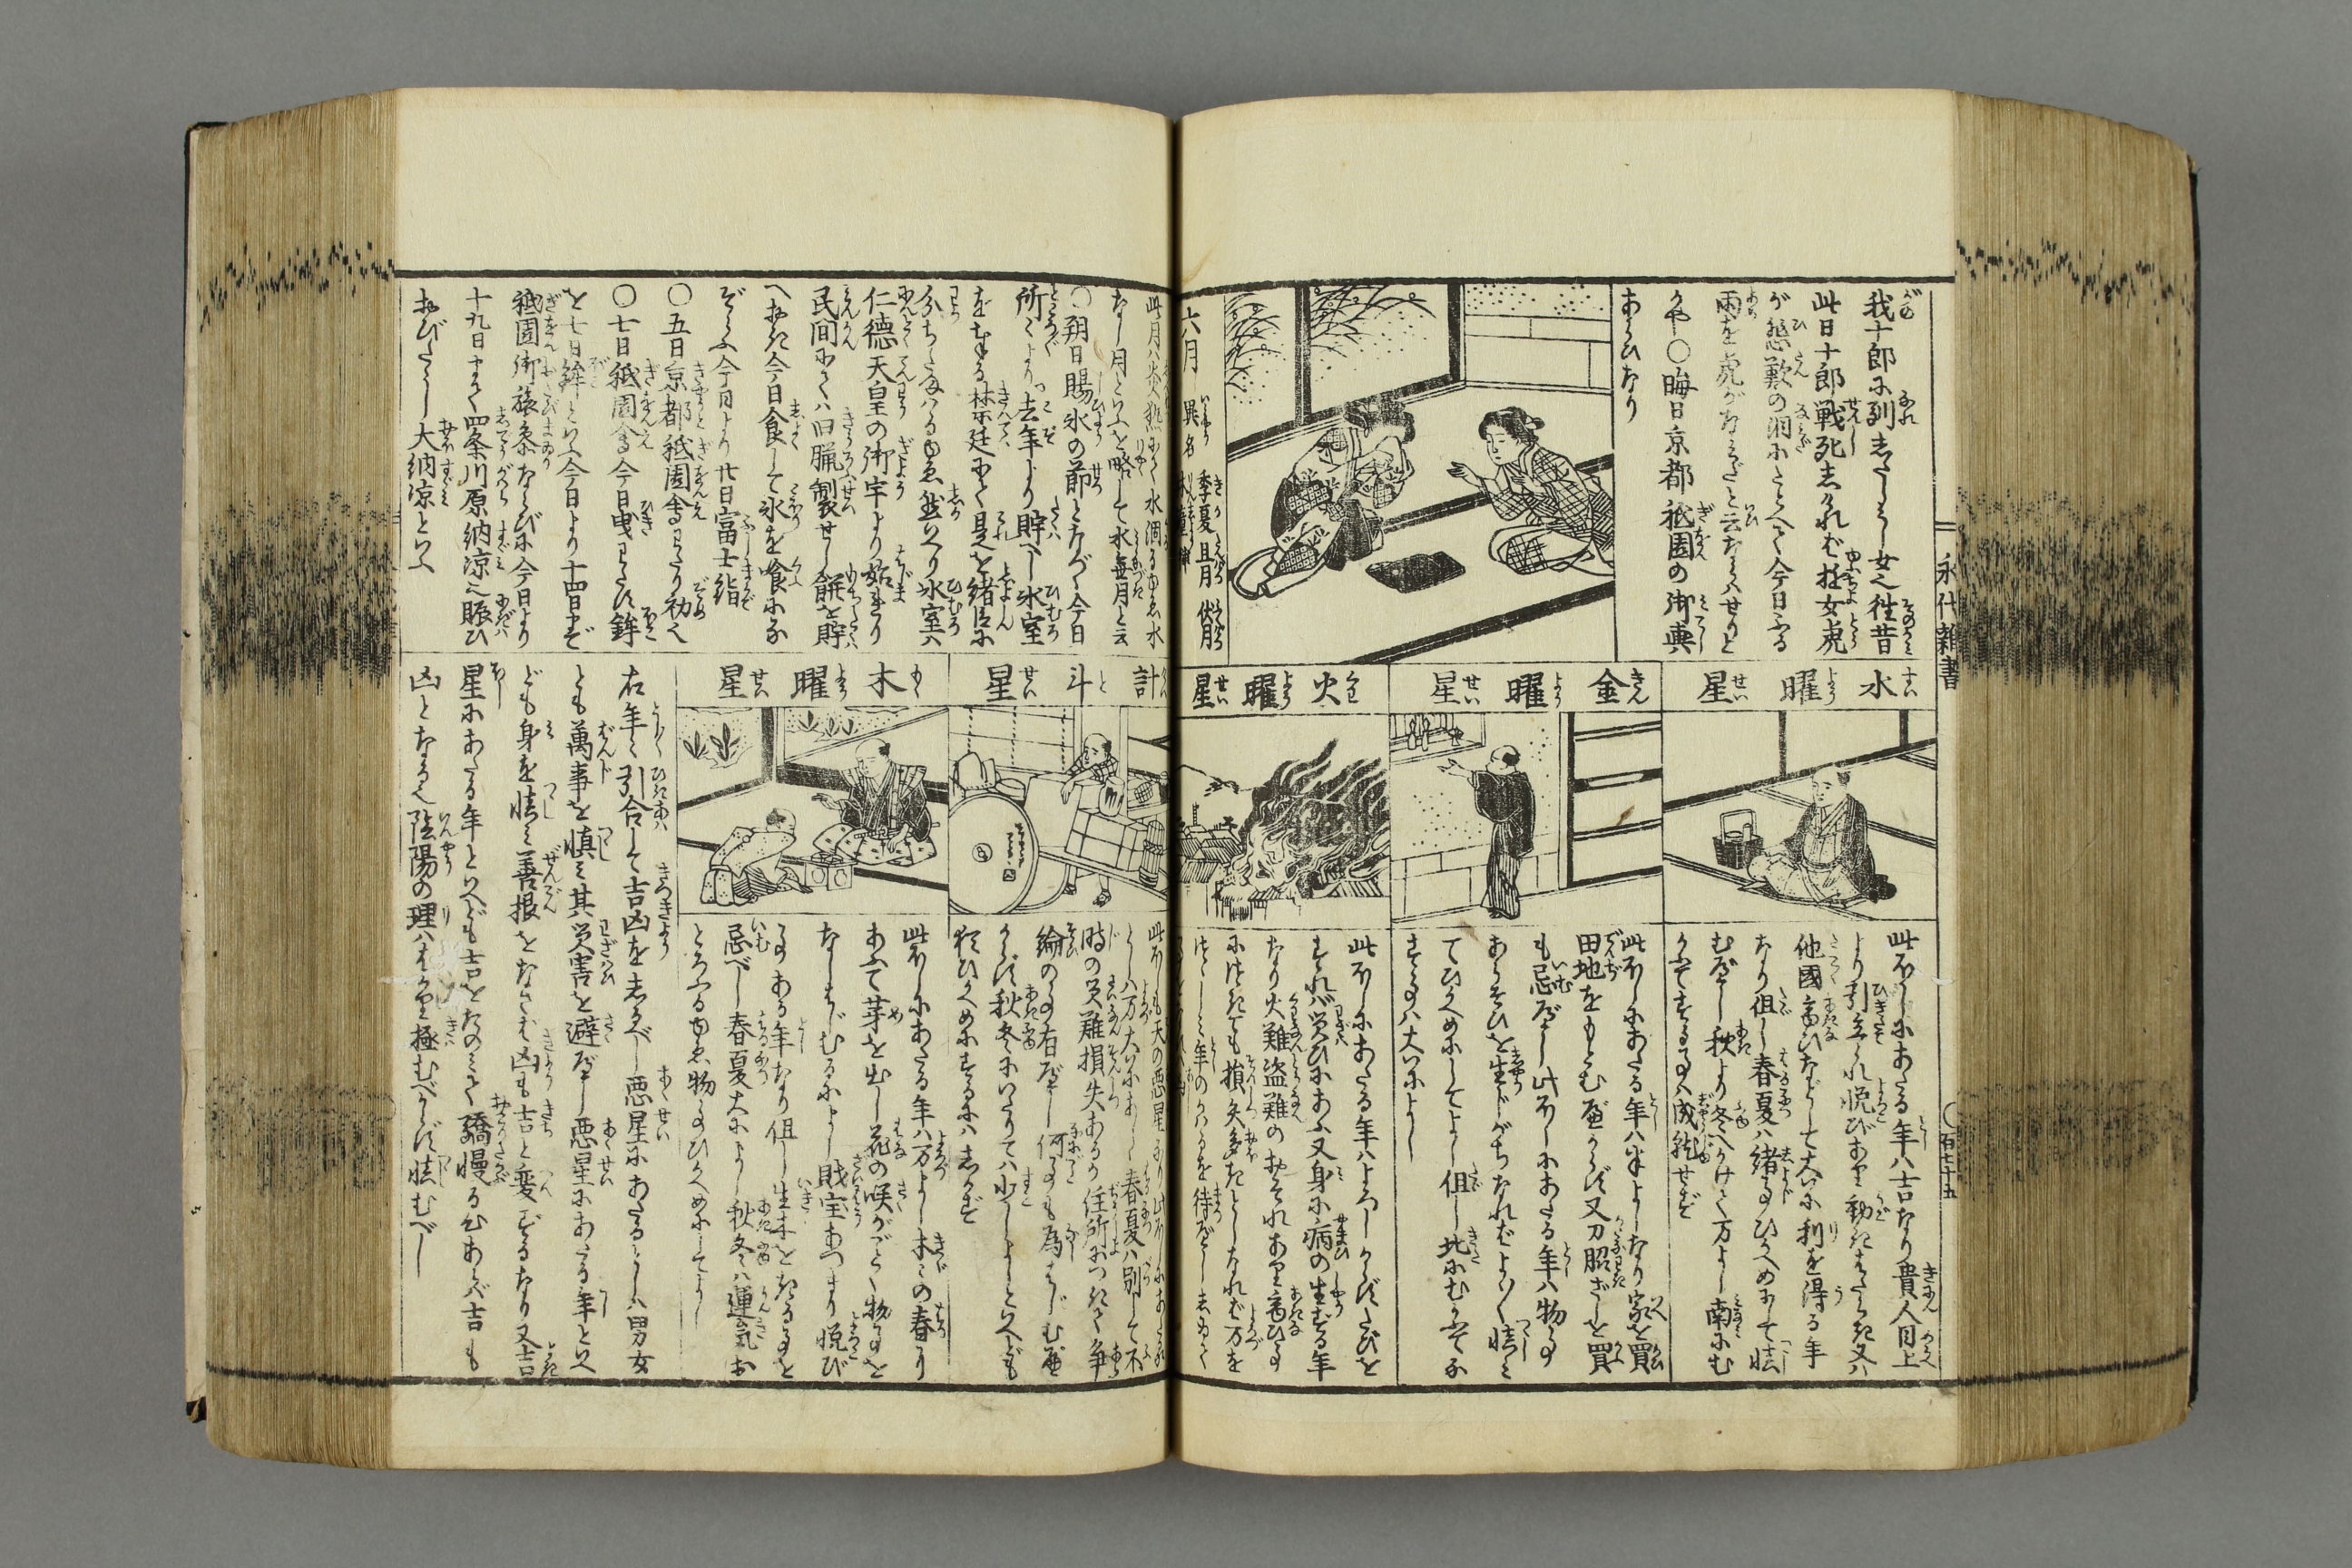 永代雑書
百七十五
我十郎に別れしたうし女之往昔
此日十郎戦死しければ遊女虎
が悲歎の涙にたとへて今日ふる
雨を虎がなみだと云ならはせりと
かや〇晦日京都祇園の御輿
あらひなり
六月 異名 季夏 且月 伏月
林鐘
水曜星
此ほしにあたる年ハ吉なり貴人目上
より引立られ悦びあり
他國商ひなどして大いに利を得る年
なり但し春夏ハ諸事ひかへめにして慎
むべし秋より冬へかけて万よし南にむ
かふてする事ハ成就せず
金曜星
此ほしにあたる年ハ半よしなり家を買
田地をもとむべからず又刀脇ざしを買
も忌べし此ほしにあたる年ハ物事
あらそひを生じがちなればよくよく慎ミ
てひかへめにしてよし但し北にむかふてな
す事ハ大いによし
火曜星
此ほしにあたる年ハよろしからずたびを
すれバ災ひにあふ又身に病の生ずる年
なり火難盗難のおそれあり商ひ事
に付ても損失多きとしなれば万を
つゝしミ年のかハるを待べし
此月ハ炎熱にて水涸るゆゑ水
なし月といふを略して水無月と云
〇朔日賜氷の節となづく今日
所々より去年より貯へし氷室
をたてまつる禁廷にて是を諸臣に
分ちたまハるゆゑ然いへり氷室ハ
仁徳天皇の御宇より始まり
民間にてハ旧臘製せし餅を貯
へおき今日食して氷を喰にな
ぞらふ今日より廿日富士詣
〇五日京都祇園会わたり初へ
〇七日祇園会今日曳わたす鉾
を七日鉾といふ今日より十四日まで
祇園御旅参ならびに今日より
十九日まで四条川原納涼之賑ひ
おびたゞし大納涼といふ
計斗星
此ほしも天の悪星なり此ほしにあたる
としハ万大いにあしく春夏ハ別して不
時の災難損失あるか住所につきて争
論の事有べし何事も為はじむべ
からず秋冬にいたりてハ少しよしといへども
猶ひかへめにするにハしかず
木曜星
此ほしにあたる年ハ万よし木々の春に
あふて芽を出し花の咲がごとく物事を
なしはじむるによし財宝あつまり悦び
事ある年なり但し生木をきる事を
忌べし春夏大によし秋冬ハ運氣お
とろふるゆゑ物事ひかへめにしてよし
右年々引合して吉凶をしるべし悪星にあたるとしハ男女
とも萬事を慎ミ其災害を避べし悪星にあたる年といへ
ども身を慎ミ善根をなさば凶も吉と変ずるなり又吉
星にあたる年といへども吉をたのミて驕慢る心あらバ吉も
凶となるべし陰陽の理ハはかり極むべからず慎むべし